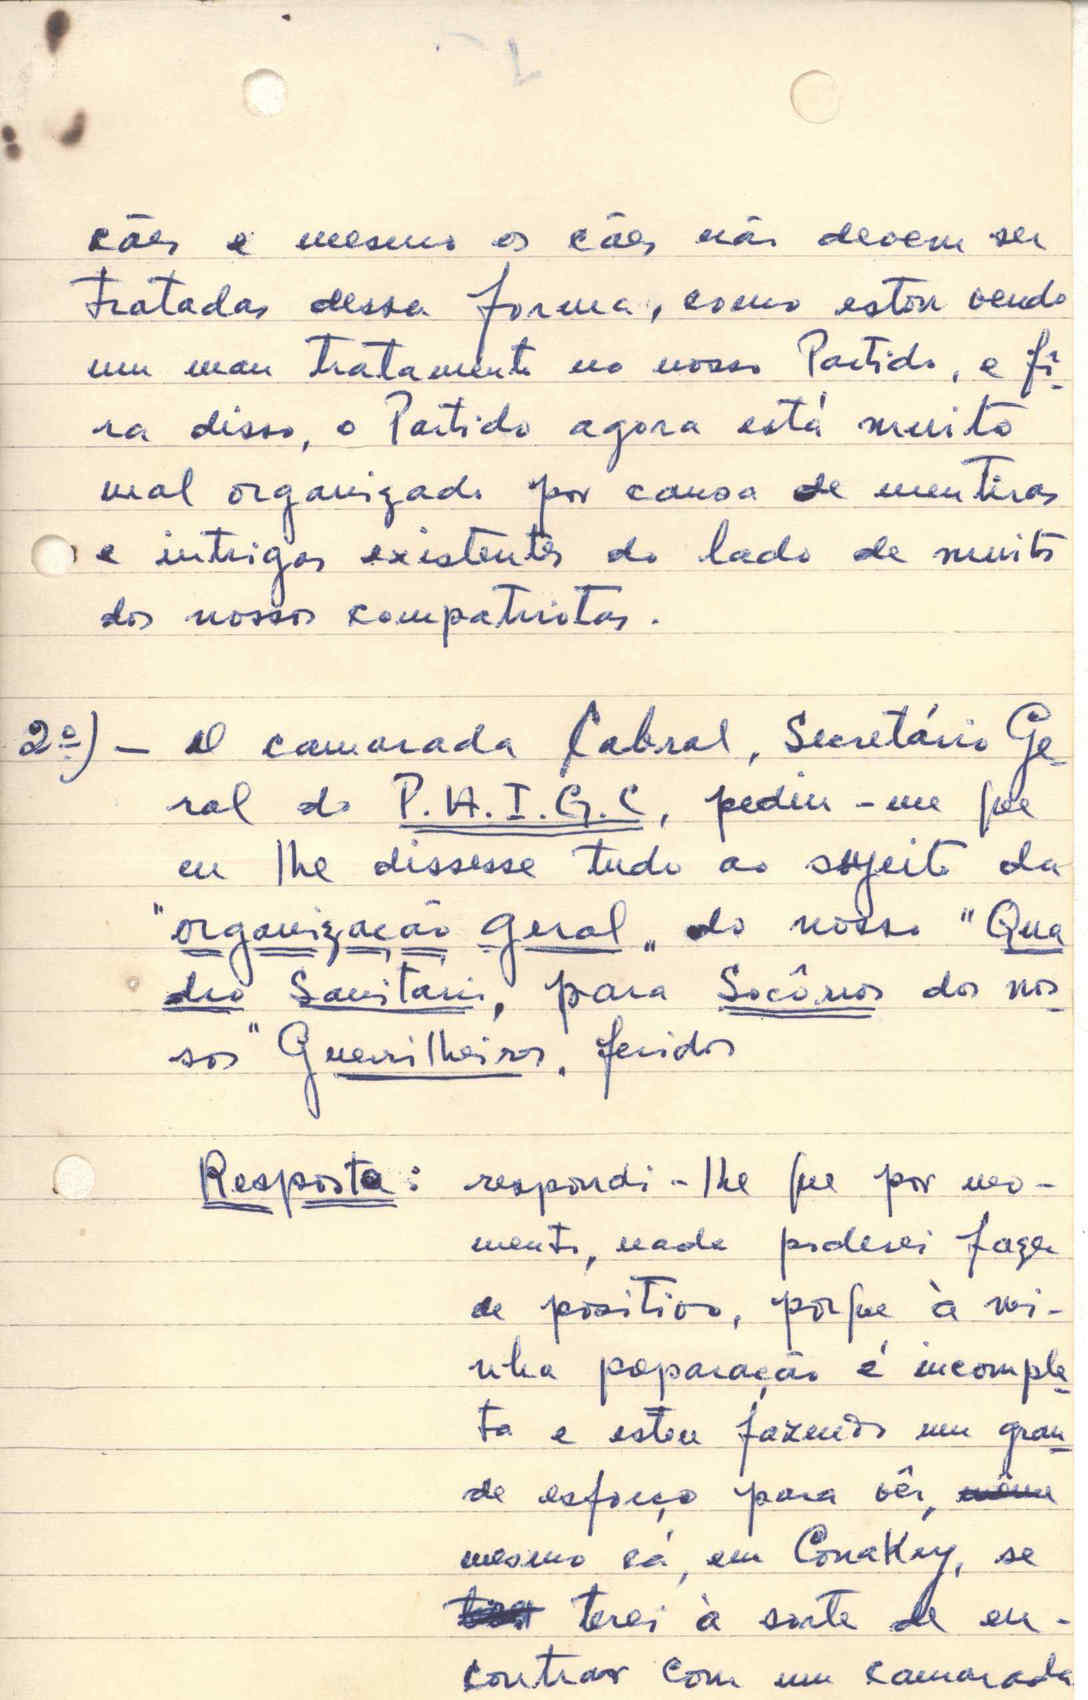 cães e mesmo os cães não devem ser
tratadas dessa forma, como estou vendo
um mau tratamento no nosso Partido, e fi-
ra disso, o Partido agora está muito
mal organizado por causa de mentiras
e intrigas existentes do lado de muits
dos nossos compatriotas.
2º) - O camarada Cabral, Secretário Ge-
ral do P.A.I.G.C, pediu-me que
eu lhe dissesse tudo ao sujeito da
"organização geral" do nosso "Qua
dro Sanitário", para Socôrros dos nos-
sos "Guerrilheiros" feridos
Resposta: respondi-lhe que por mo-
mento, nada poderei fazer
de positivo, porque à mi-
nha preparação é incomple-
ta e estou fazendo um gran-
de esforço para vêr, même
mesmo cá, em Conakry, se
terei à sorte de en-
contrar com um camarada